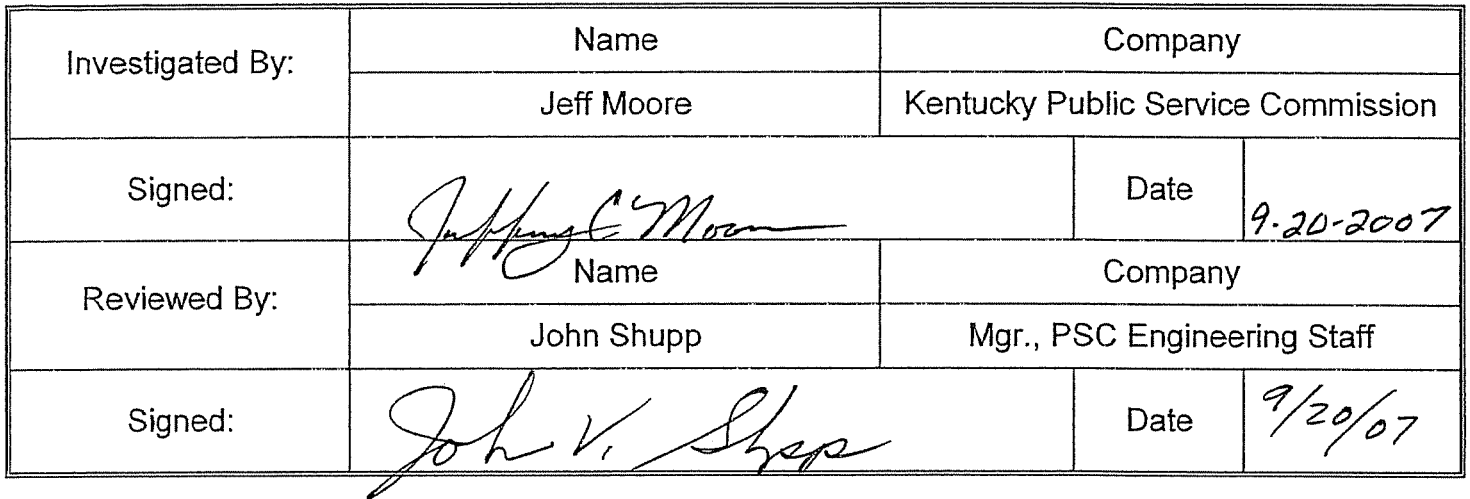 Investigated By:
Name
Company
Jeff Moore
Kentucky Public Service Commission
Signed:
Jeffrey C Moore
Date
9-20-2007
Reviewed By:
Name
Company
John Shupp
Mgr., PSC Engineering Staff
Signed:
John V. Shupp
Date
9/20/07